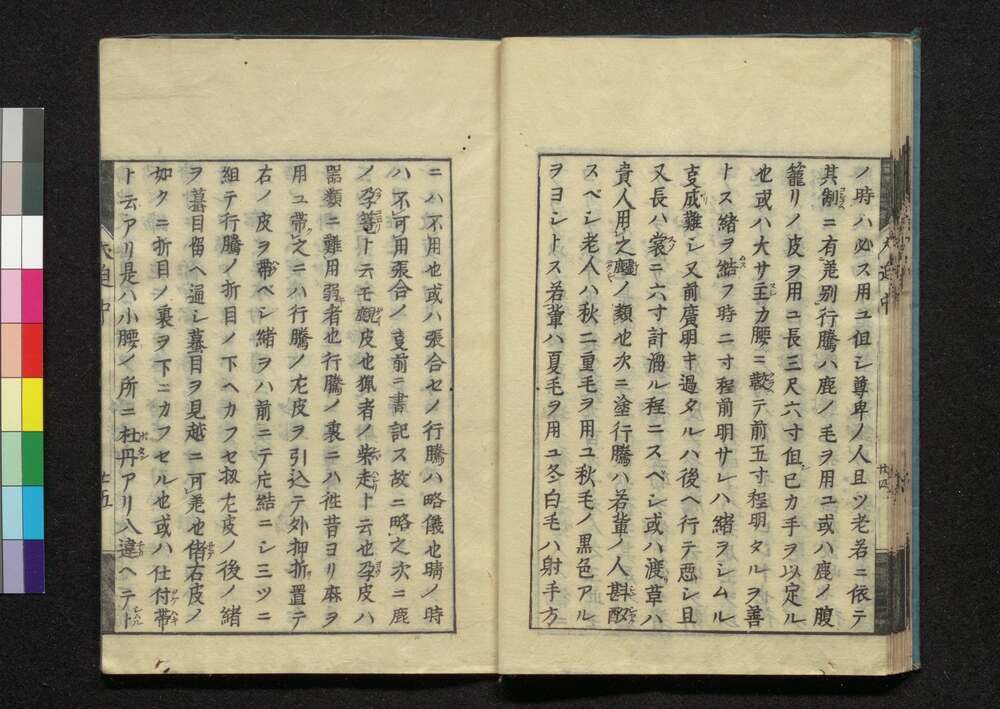 ノ時ハ必ス用ユ但シ尊卑ノ人且ツ老若ニ依テ
其制ニ有差別行騰ハ鹿ノ毛ヲ用ユ或ハ鹿ノ腹
籠リノ皮ヲ用ユ長三尺六寸但己カ手ヲ以定ル
也或ハ大サ主カ腰ニ敲テ前五寸程明タルヲ善
トス緒ヲ結フ時ニ寸程前明サレハ緒ヲシムル
支成難シ又前廣明キ過タルハ後ヘ行テ悪シ且
又長ハ裳ニ六寸計溜ル程ニスベシ或ハ渡草ハ
貴人用之麑ノ類也次ニ塗行騰ハ若輩ノ人斟酌
スベシ老人ハ秋二重毛ヲ用ユ秋毛ノ黒色アル
ヲヨシトス若輩ハ夏毛ヲ用ユ冬ノ白毛ハ射手方
廿五
ニハ不用也或ハ張合セノ行騰ハ略儀也晴ノ時
ハ不可用張合ノ支前ニ書記ス故ニ略之次ニ鹿
ノ孕ト云モ皮也猟者ノ柴走ト云也孕皮ハ
器類ニ難用弱者也行騰ノ裏ニハ徃昔ヨリ麻ヲ
用ユ帯之ニハ行騰ノ左皮ヲ引込テ外抑折置テ
右ノ皮ヲ帯ベシ緒ヲハ前ニテ片結ニシ三ツニ
組テ行騰ノ折目ノ下ヘカフセ扨左皮ノ後ノ緒
ヲ蟇目留ヘ通シ蟇目ヲ見越ニ可差也偖右皮ノ
如クニ折目ノ裏ヲ下ニカフセル也或ハ仕付帯
ト云アリ是ハ小腰ノ所ニ杜丹アリ八違ヘテト
廿五